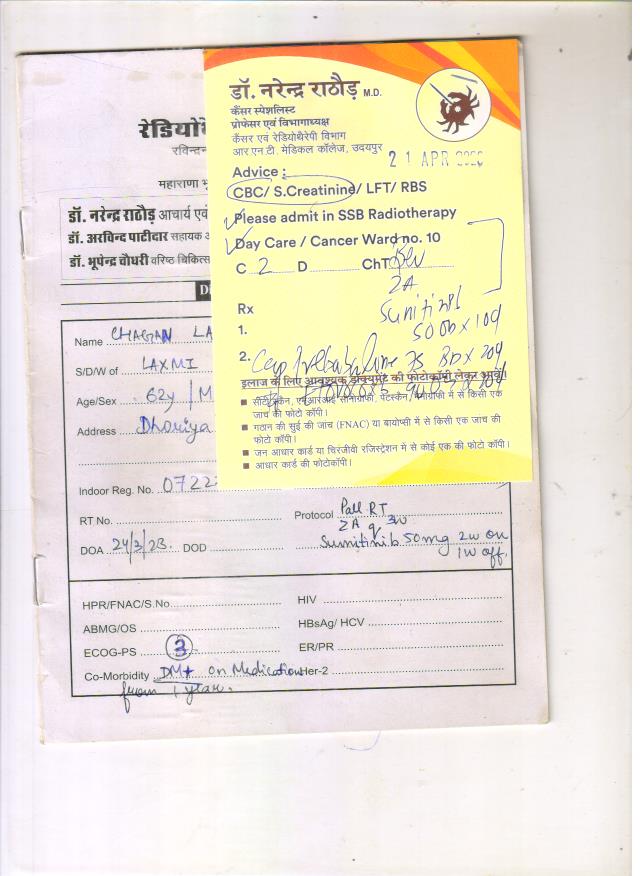 डॉ. नरेन्द्र राठौड़ M.D.
कैंसर स्पेशलिस्ट
प्रोफेसर एवं विभागाध्यक्ष
कैंसर एवं रेडियोथैरेपी विभाग
आर.एन.टी. मेडिकल कॉलेज, उदयपुर
21 APR
Advice :
CBC/ S.Creatinine/ LFT/ RBS
Please admit in SSB Radiotherapy
Day Care / Cancer Ward no. 10
C 2 D ChT
ZA
Rx
1. Sunitinib
2. Cap
इलाज के लिए आवश्यक डॉक्यूमेंट की फोटोकॉपी लेकर आवें।
जांच की फोटो कॉपी।
गठान की सुई की जांच (FNAC) या बायोप्सी में से किसी एक जांच की
फोटो कॉपी।
जन आधार कार्ड या चिरंजीवी रजिस्ट्रेशन में से कोई एक की फोटो कॉपी।
आधार कार्ड की फोटोकॉपी।
रेडियो
रविन्द
महाराणा भू
डॉ. नरेन्द्र राठौड़ आचार्य एवं
डॉ. अरविन्द पाटीदार सहायक
डॉ. भूपेन्द्र चौधरी वरिष्ठ चिकित्स
Name CHAGAN LA
S/D/W of LAXMI
Age/Sex 62y / M
Address Dhoriya
Indoor Reg. No. 0722
RT No. Protocol Pall RT
ZA q 3w
DOA 24/3/23. DOD Sunitinib 50mg 2w on
1w off.
HPR/FNAC/S.No. HIV
ABMG/OS HBsAg/ HCV
ECOG-PS 3 ER/PR
Co-Morbidity DM+ on Medication Her-2
from 1 year.